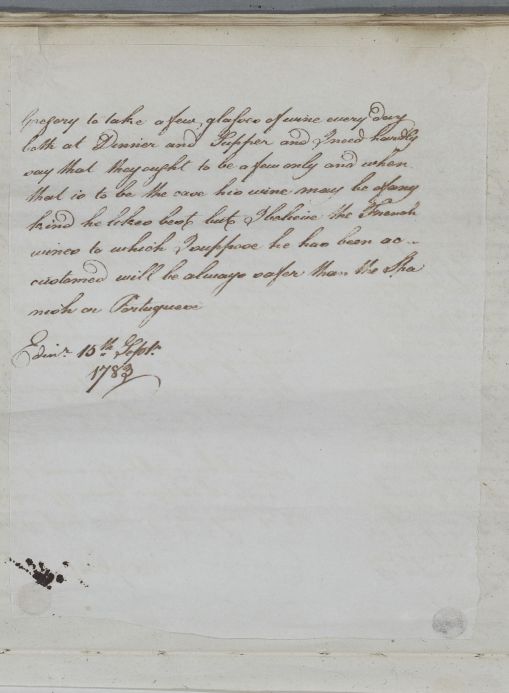 Gregory to take a few glasses of wine every day
both at Dinnier and Supper and I need hardly
say that they ought to be a few only and when
that is to be the case his wine may be of any
kind he likes best but I believe the French
wines to which I suppose he has been ac-
customed will be always safer than the Spa
nish or Portuguese
Edinr. 15th. Septr.
1783